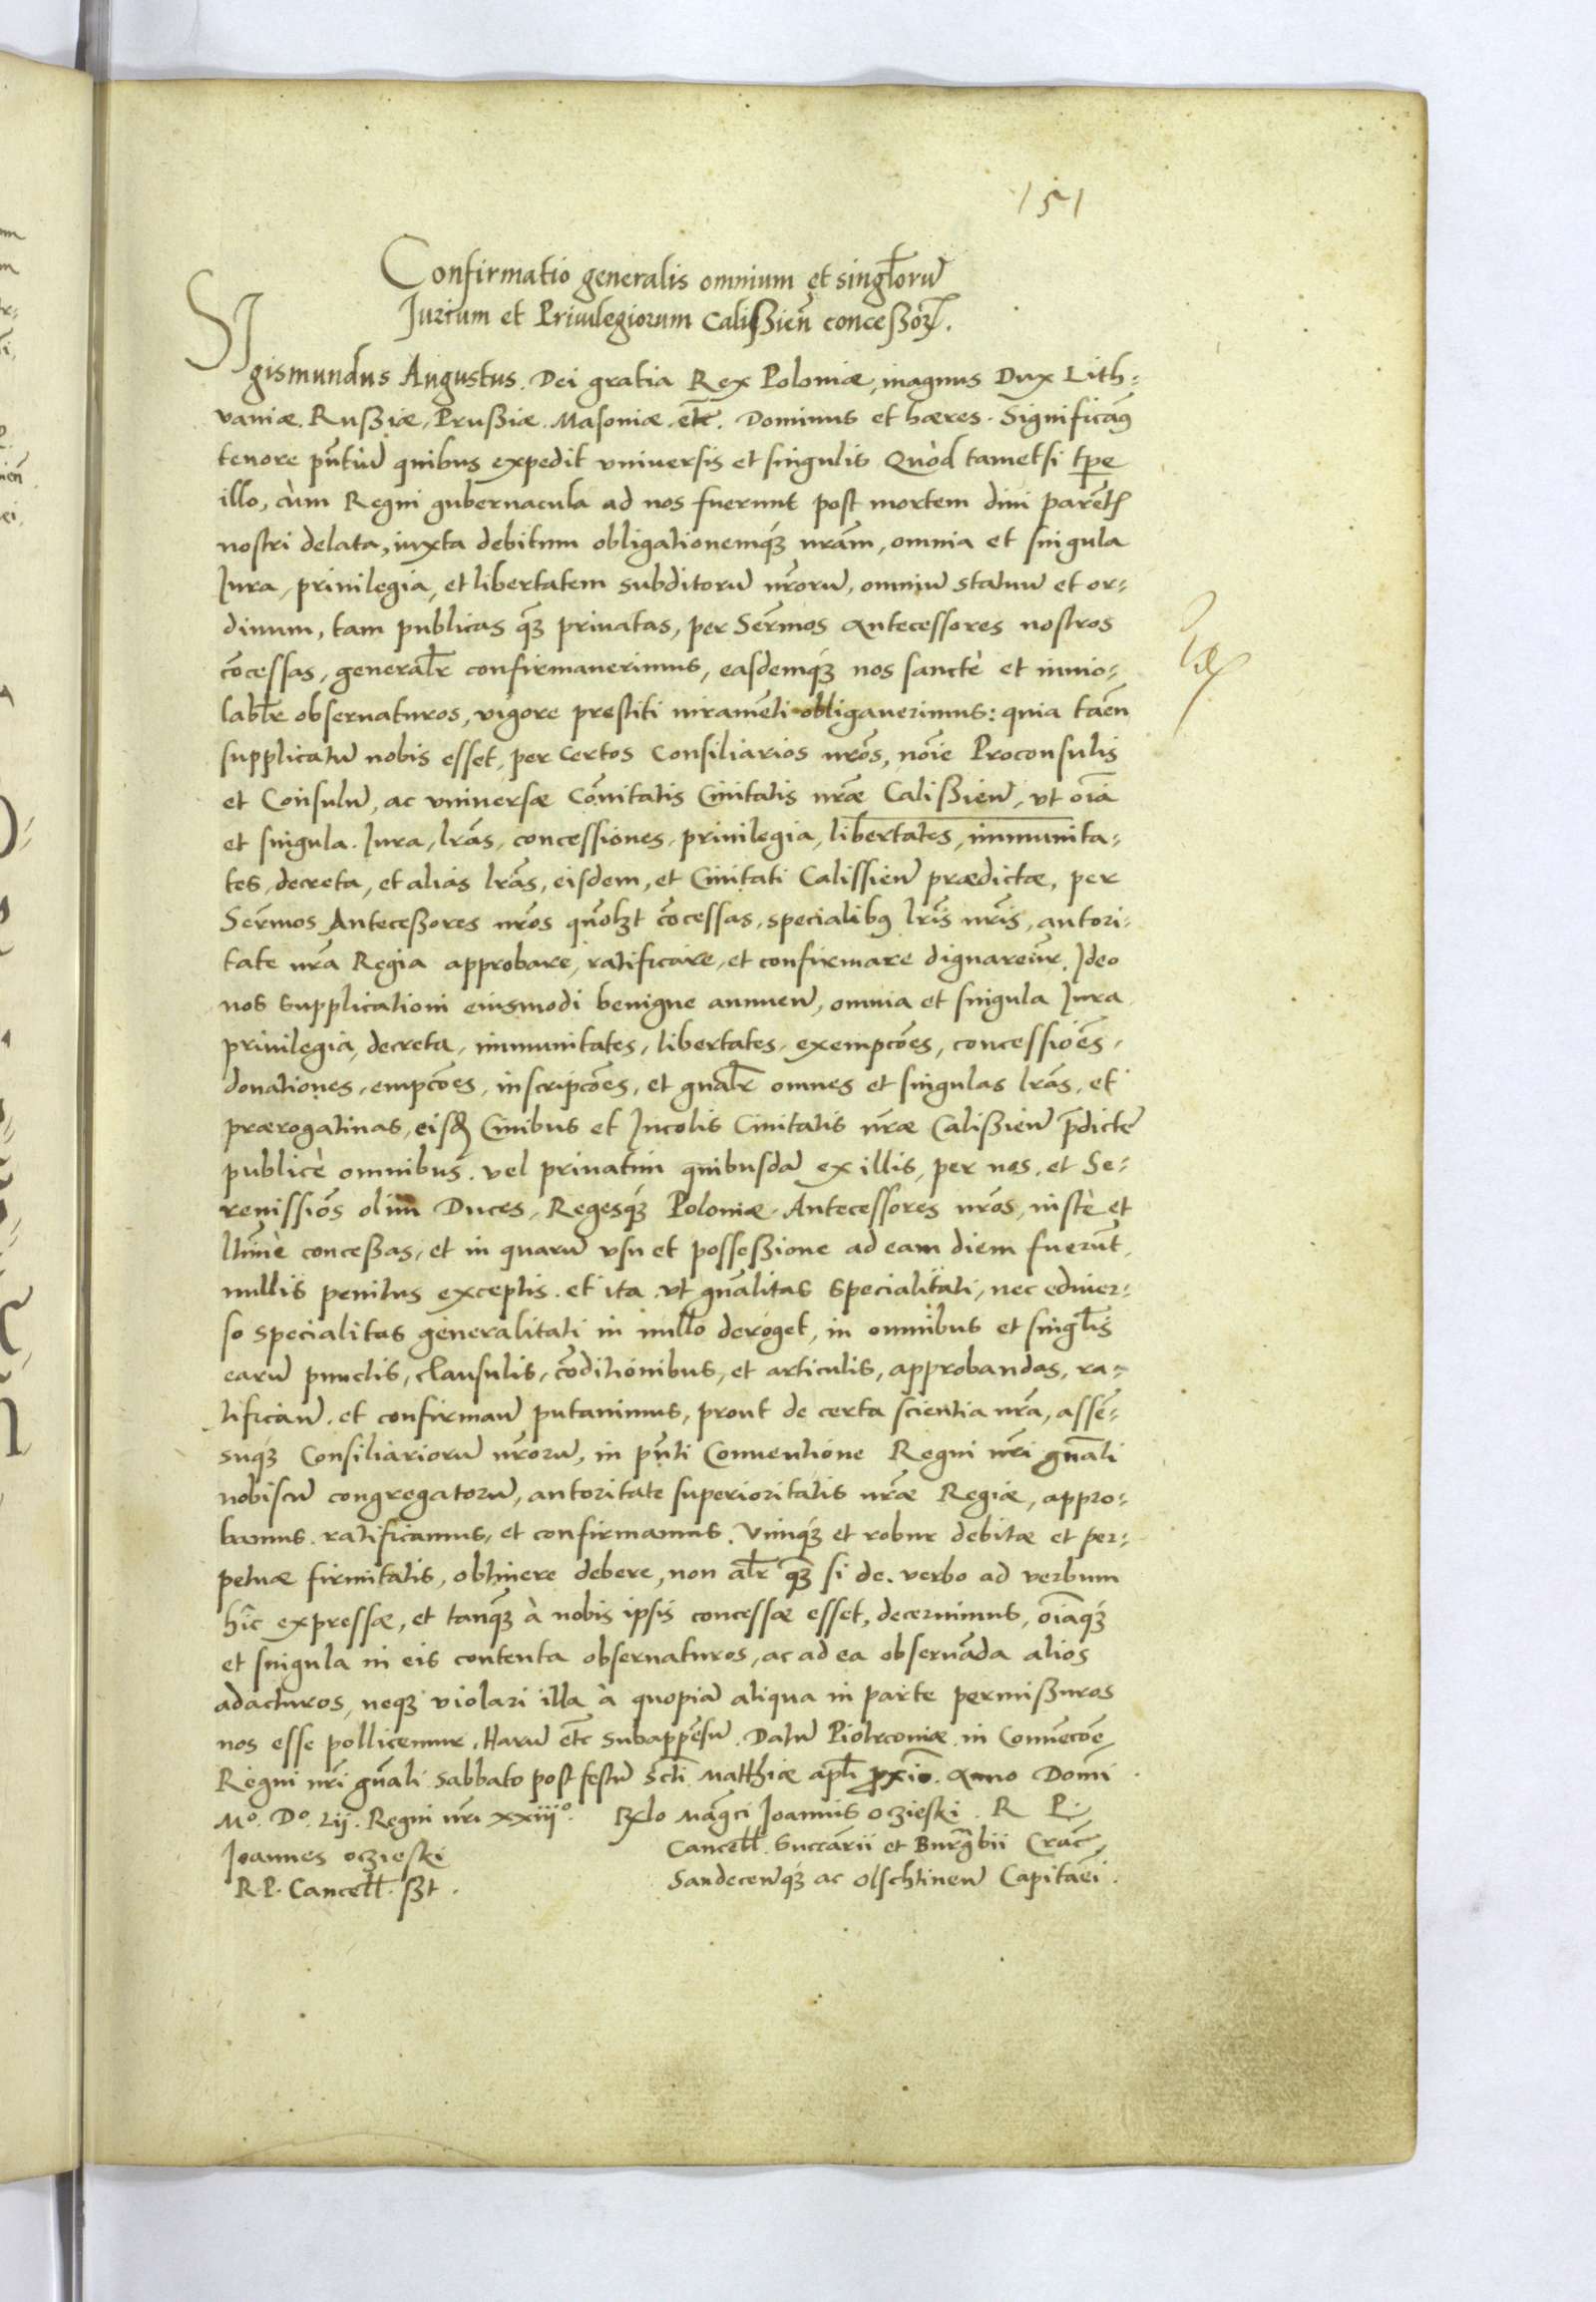 151
Confirmatio generalis omnium et singl̃orũ
Jurium et Priuilegiorum Calißieñ conceßoꝝ.
SIgismundus Augustus. Dei gratia Rex Poloniæ, magnus Dux Lith-
vaniæ. Rußiæ, Prußiæ. Masouiæ. etc̃. Dominus et hæres. Significãꝰ
tenore pñtiũ quibus expedit vniuersis et singulis Quòd tametsi tp̃e
illo, cùm Regni gubernacula ad nos fuerunt post mortem diui parẽtꝭ
nostri delata, iuxta debitum obligationemqꝫ nr̃am, omnia et singula
Jura, priuilegia, et libertatem subditorũ nr̃orũ, omniũ statuũ et or-
dinum, tam publicas qꝫ̃ priuatas, per Serm̃os Antecessores nostros
cõcessas, general̃r confirmauerimus, easdemqꝫ nos sanctè et inuio-
labl̃r obseruaturos, vigore prestiti iuramẽti obligauerimus: quia tam̃en
supplicatũ nobis esset, per certos Consiliarios nr̃os, nõie Proconsulis
et Consulũ, ac vniuersæ Cõmitatis Ciuitatis nr̃æ Calißieñ, vt oĩa
et singula. Jura, lr̃as, concessiones, priuilegia, libertates, immunita-
tes, decreta, et alias lr̃as, eisdem, et Ciuitati Calissieñ prædictæ, per
Serm̃os Anteceßores nr̃os quõlꝫt cõcessas, specialibꝰ lr̃is nr̃is, autori-
tate nr̃a Regia approbare, ratificare, et confirmare dignarem̃ur. Ideo
nos supplicationi eiusmodi benigne annueñ, omnia et singula Jura
priuilegia, decreta, immunitates, libertates, exempcõ̃es, concessiões,
donationes, empcõ̃es, inscripcõ̃es, et gñal̃r omnes et singulas lr̃as, et
prærogatiuas, eisd̃ Ciuibus et Incolis Ciuitatis nr̃æ Calißieñ p̃dicte
publicè omnibus, vel priuatim quibusdã ex illis, per nos, et Se-
renissiõs olim Duces, Regesqꝫ Poloniæ, Antecessores nr̃os, iustè et
ltim̃è conceßas, et in quarũ vsu et possessione ad eam diem fuerũt,
nullis penitus exceptis. et ita. vt gñalitas specialitati, nec ediuer-
so specialitas generalitati in nullo deroget, in omnibus et singl̃is
earũ punctis, clausulis, cõditionibus, et articulis, approbandas, ra-
tificañ. et confirmañ putauimus, prout de certa scientia nr̃a, assẽ-
suqꝫ Consiliariorũ nr̃orũ, in pñti Conuentione Regni nr̃i gñali
nobiscũ congregatorũ, autoritate superioritatis nr̃æ Regiæ, appro-
bamus. ratificamus, et confirmamus. Vimqꝫ et robur debitæ et per-
petuæ firmitatis, obtinere debere, non al̃r qꝫ̃ si de. verbo ad verbum
hîc expressæ, et tanqꝫ̃ à nobis ipsis concessæ esset, decernimus, oĩaqꝫ
et singula in eis contenta obseruaturos, ac ad ea obseruãda alios
adacturos, neqꝫ violari illa à quopiã aliqua in parte permißuros
nos esse pollicemur. Harũ etc̃ subappẽsũ. Datũ Piotrcouiæ. in Conuẽcõe
Regni nr̃i gñali Sabbato post festũ Scti Matthiæ apl̃i ꝓxiõ. Anno Domĩ
Mº. Dº. Lij. Regni nr̃i xxiijº.
Rẽlo Mag̃ci Joannis Oczieski. R P.
Cancell̃. Succãrii et Burg̃bii Crac̃,
Sandeceñqꝫ ac Olschtineñ Capitaẽi.
Joannes Oczieski
R. P. Cancell̃. ßt.